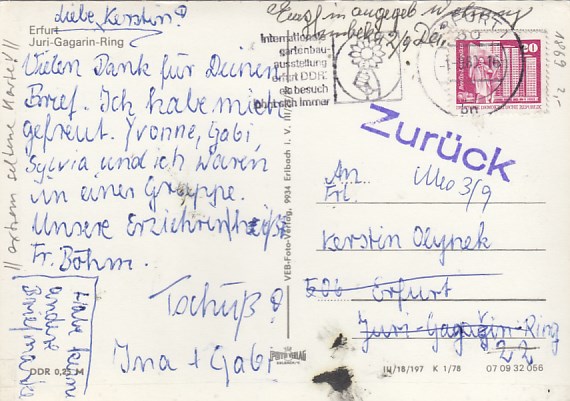 liebe Kerstin!
Erfurt
Juri-Gagarin-Ring
Vielen Dank für Deinen
Brief. Ich habe mich
gefreut. Yvonne, Gabi
Sylvia und ich waren
in einer Gruppe.
Unsere Erzieherin heißt
Fr. Böhm.
Tschüß!
Ina + Gabi
Hab keine
andere
Briefmarke
DDR 0,25 M
// extrem seltene Karte! //
VEB-Foto-Verlag, 9934 Erlbach i. V.
in angegeb Wohnung
2/9
Internationale
gartenbau-
ausstellung
erfurt DDR
ein besuch
lohnt sich immer
ERFURT
20
1869
2,-
Zurück
An
Frl.
3/9
Kerstin Olynek
506 Erfurt
Juri-Gagarin-Ring
22
FOTO VERLAG
III/18/197 K 1/78 07 09 32 056